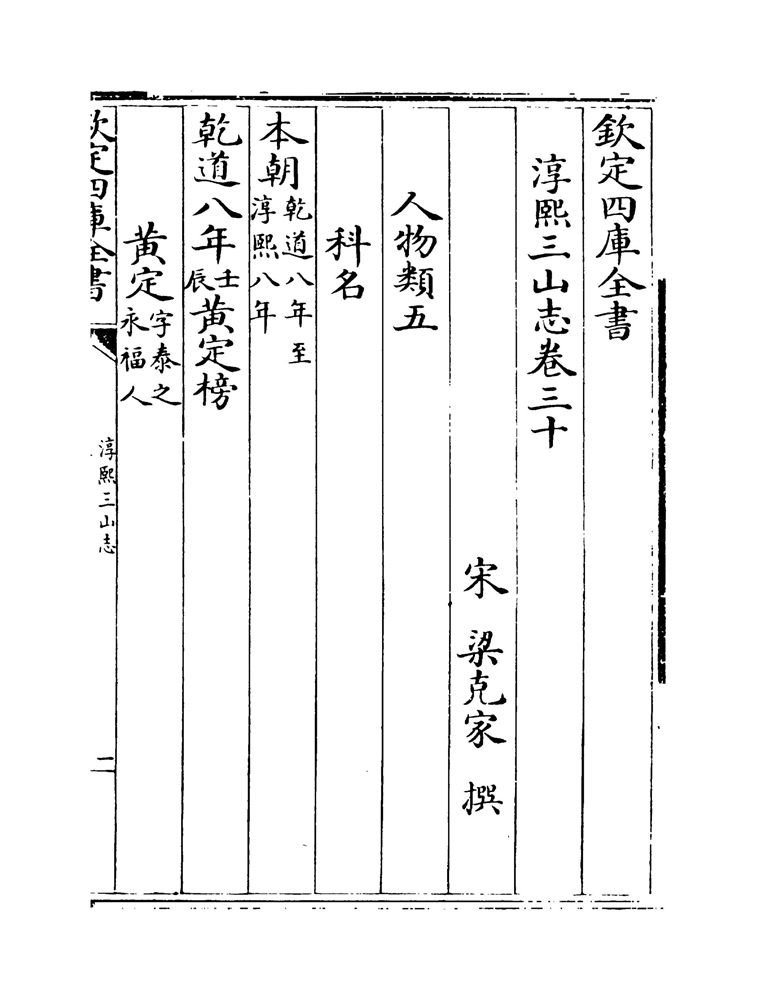 欽定四庫全書
淳熙三山志卷三十
宋 梁克家 撰
人物類五
科名
本朝乾道八年至淳熙八年
乾道八年壬辰黄定榜
黄定字泰之永福人
欽定四庫全書 淳熙三山志 二